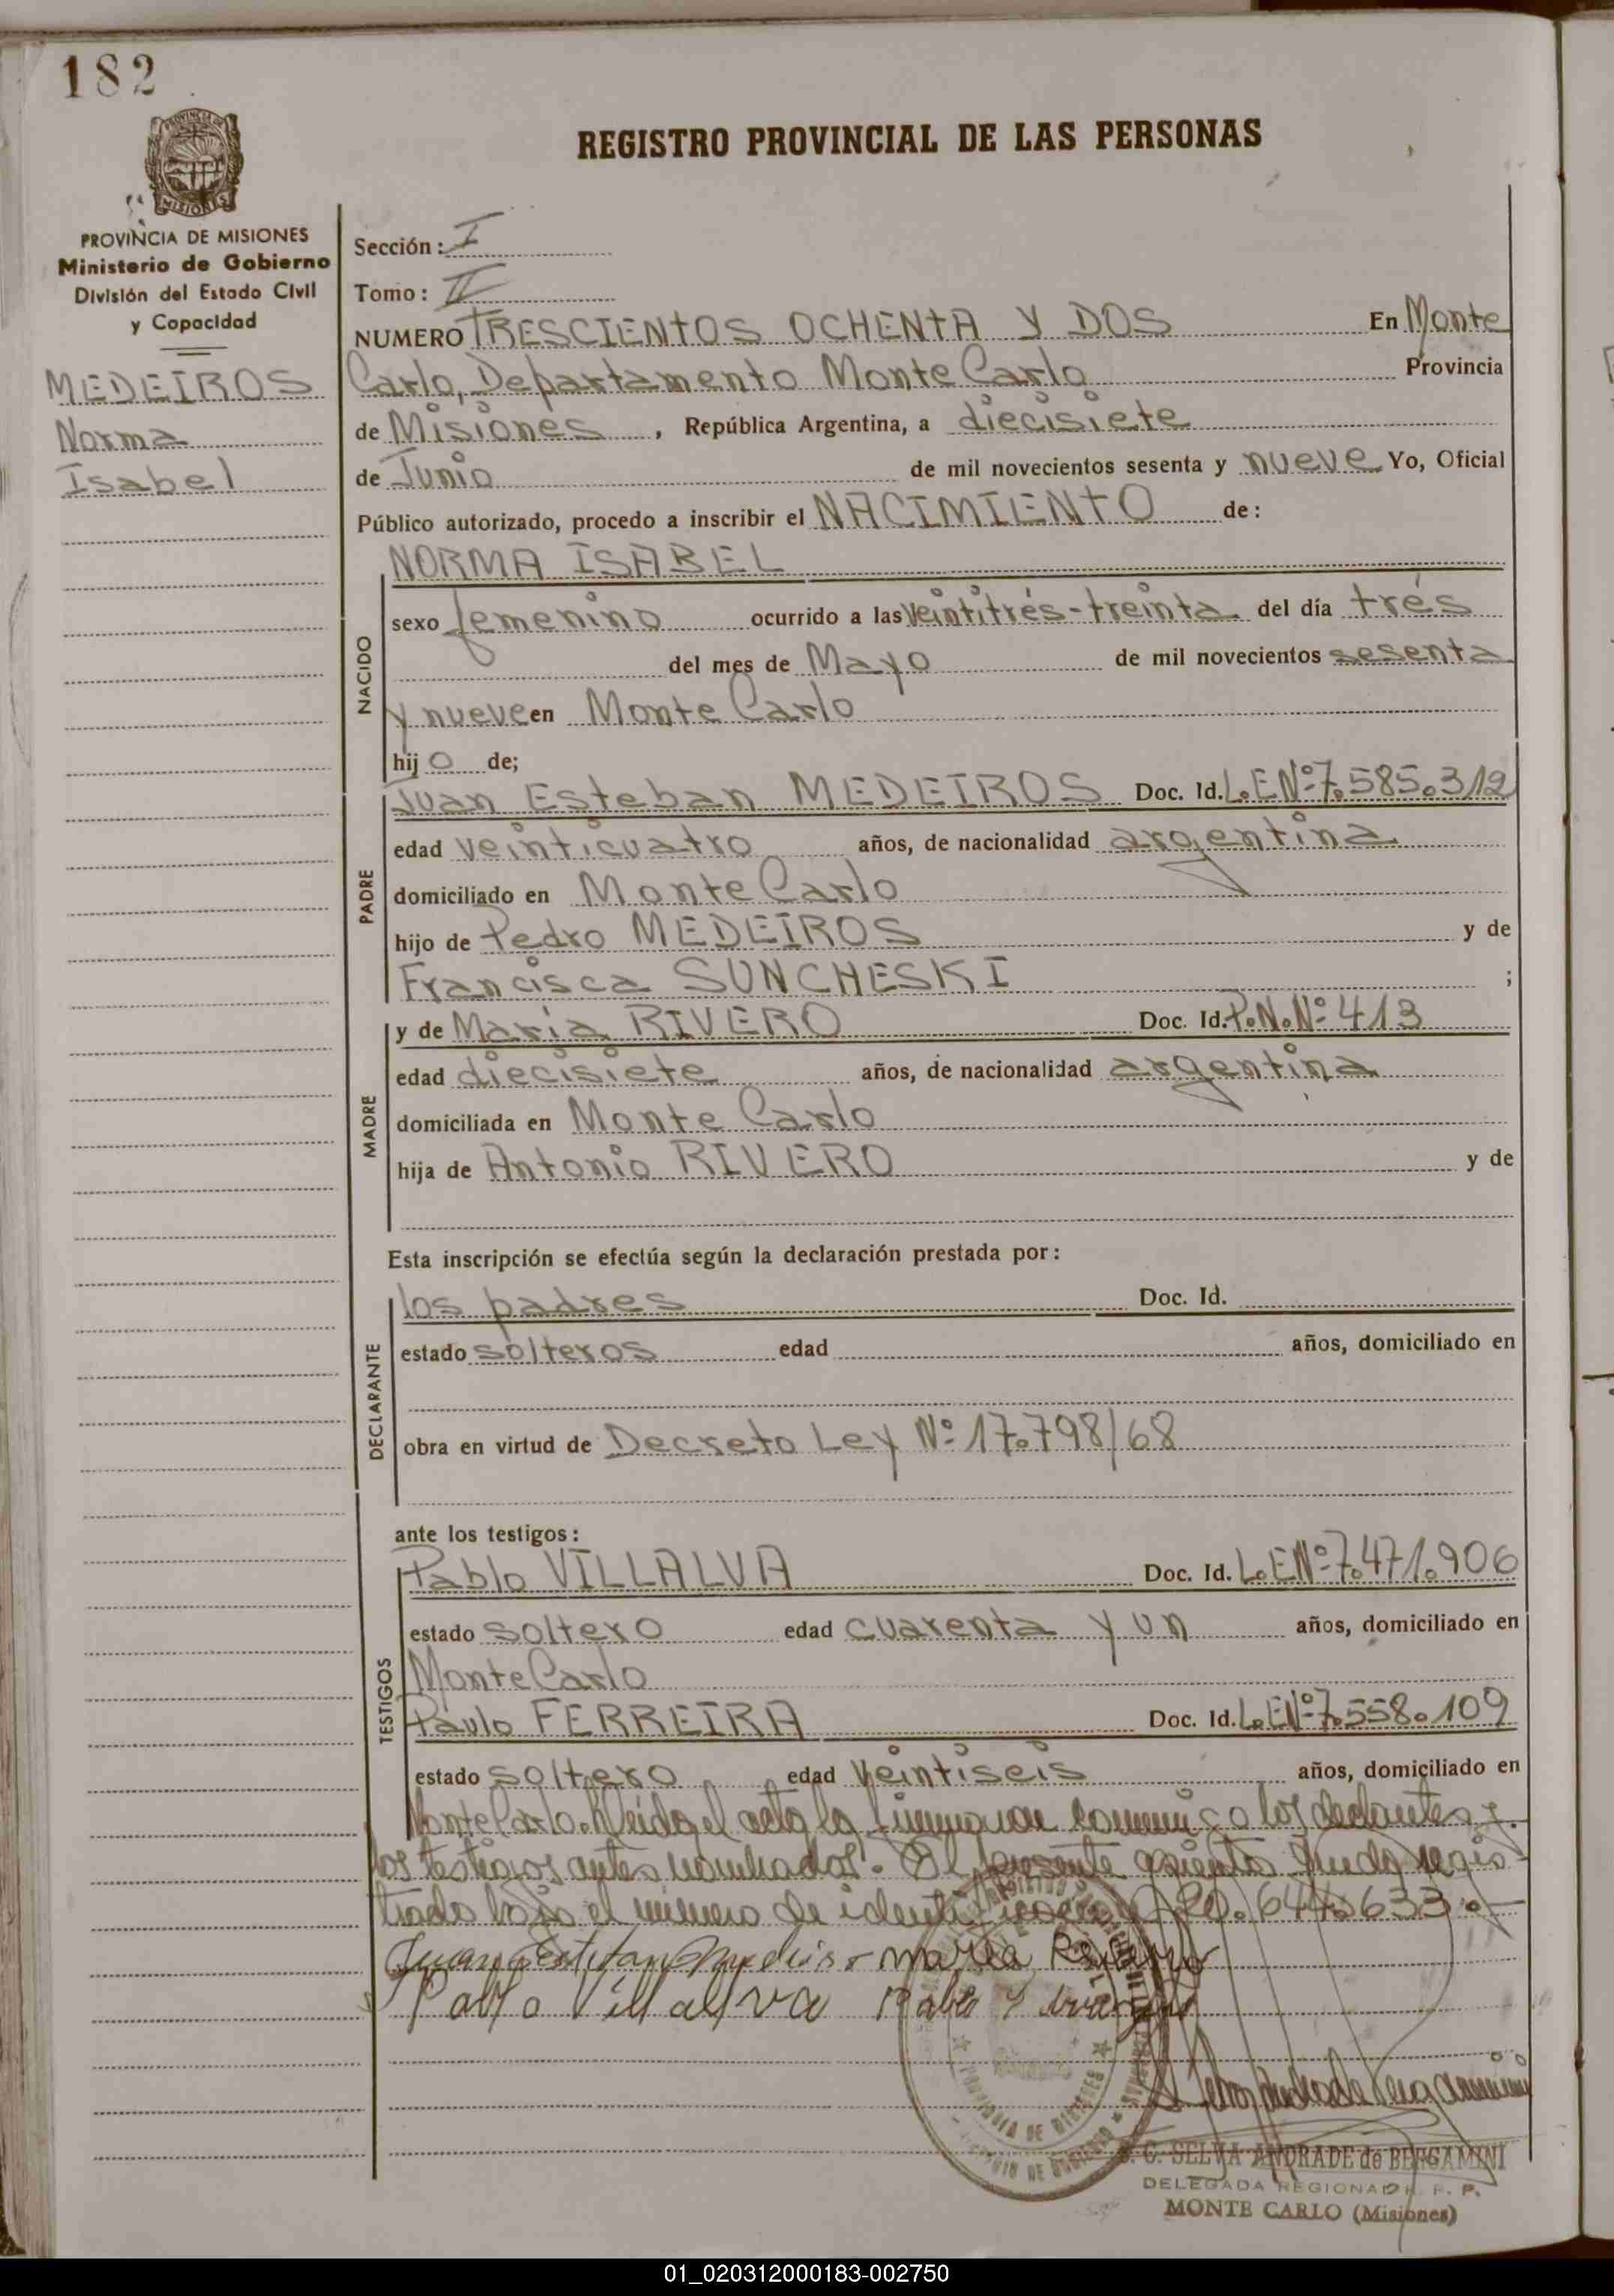 182
PROVINCIA DE MISIONES
REGISTRO PROVINCIAL DE LAS PERSONAS
PROVINCIA DE MISIONES
Ministerio de Gobierno
División del Estado Civil
y Capacidad
MEDEIROS
Norma
Isabel
Sección: I
Tomo: II
NUMERO TRESCIENTOS OCHENTA Y DOS En Monte
Carlo, Departamento Monte Carlo Provincia
de Misiones, República Argentina, a diecisiete
de Junio de mil novecientos sesenta y nueve Yo, Oficial
Público autorizado, procedo a inscribir el NACIMIENTO de:
NACIDO
NORMA ISABEL
sexo femenino ocurrido a las veintitrés-treinta del día trés
del mes de Mayo de mil novecientos sesenta
y nueve en Monte Carlo
hij o de;
PADRE
Juan Esteban MEDEIROS Doc. Id. L.E.Nº 7.585.312
edad veinticuatro años, de nacionalidad argentina
domiciliado en Monte Carlo
hijo de Pedro MEDEIROS y de
Francisca SUNCHESKI ;
MADRE
y de María RIVERO Doc. Id. P.N.Nº 413
edad diecisiete años, de nacionalidad argentina
domiciliada en Monte Carlo
hija de Antonio RIVERO y de
Esta inscripción se efectúa según la declaración prestada por:
DECLARANTE
los padres Doc. Id.
estado solteros edad años, domiciliado en
obra en virtud de Decreto Ley Nº 17.798/68
ante los testigos:
TESTIGOS
Pablo VILLALVA Doc. Id. L.E.Nº 7.471.906
estado soltero edad cuarenta y un años, domiciliado en
Monte Carlo
Paulo FERREIRA Doc. Id. L.E.Nº 7.558.109
estado soltero edad veintiseis años, domiciliado en
Monte Carlo. Leida el acta la firmaron conmigo los declarantes y
los testigos antes nombrados. El presente asiento queda regis
trado bajo el número de identificación 20.644.633.-
Juan Esteban María Rivero
Pablo Villalva
PROVINCIA DE MISIONES
C. SELVA ANDRADE de BERGAMINI
DELEGADA REGIONAL R. P. P.
MONTE CARLO (Misiones)
01_020312000183-002750